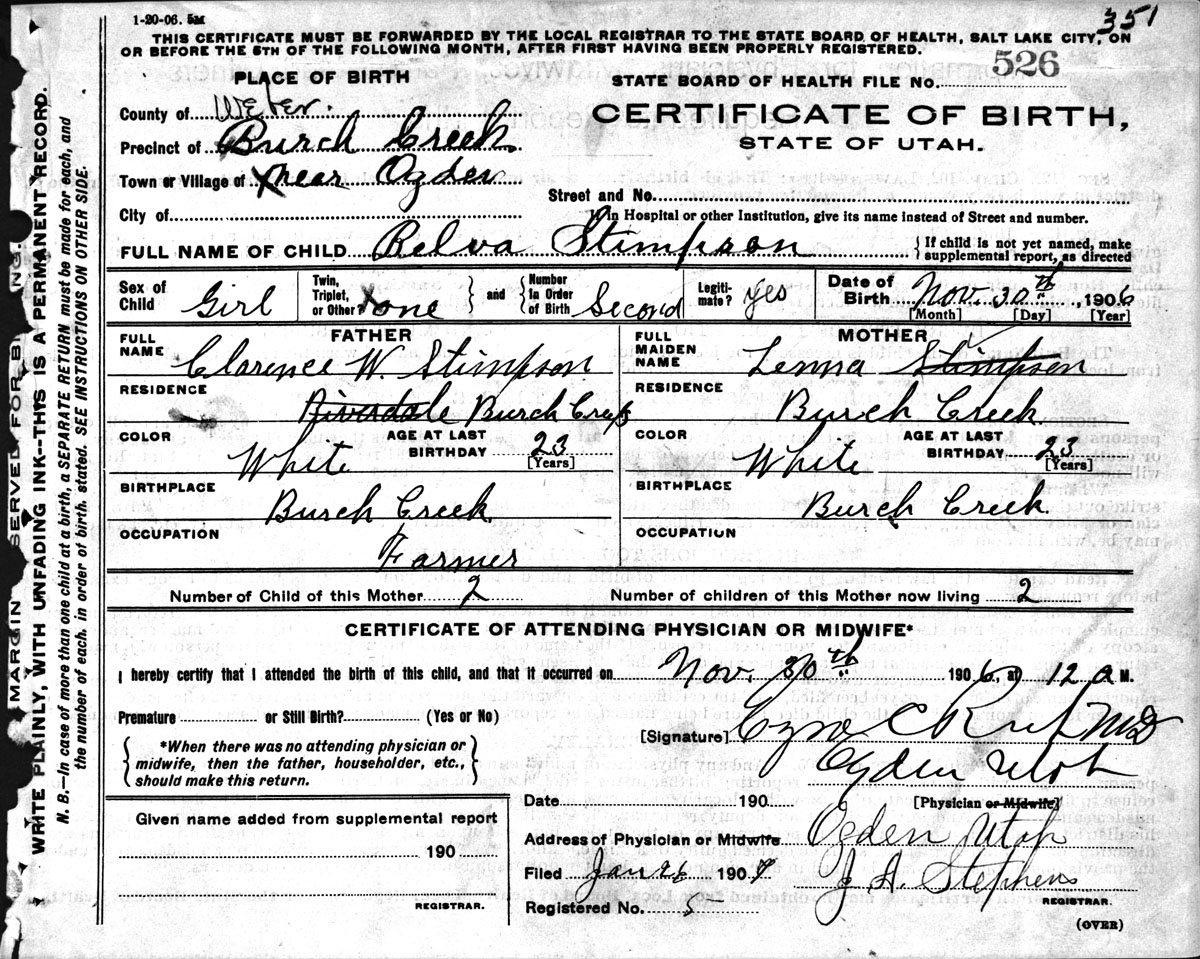 1-20-06. 5M
351
THIS CERTIFICATE MUST BE FORWARDED BY THE LOCAL REGISTRAR TO THE STATE BOARD OF HEALTH, SALT LAKE CITY, ON
OR BEFORE THE 5TH OF THE FOLLOWING MONTH, AFTER FIRST HAVING BEEN PROPERLY REGISTERED.
PLACE OF BIRTH
STATE BOARD OF HEALTH FILE No. 526
County of Weber.
CERTIFICATE OF BIRTH,
Precinct of Burch Creek
STATE OF UTAH.
Town or Village of near Ogden
Street and No.
City of
If in Hospital or other Institution, give its name instead of Street and number.
FULL NAME OF CHILD Relva Stimpson
If child is not yet named, make
supplemental report, as directed
Sex of Child Girl
Twin, Triplet, or Other? one
and
Number in Order of Birth Second
Legitimate? yes
Date of Birth Nov. 30th, 1906
[Month] [Day] [Year]
FATHER
FULL NAME Clarence W. Stimpson
RESIDENCE Riverdale Burch Creek
COLOR White
AGE AT LAST BIRTHDAY 23 [Years]
BIRTHPLACE Burch Creek
OCCUPATION Farmer
MOTHER
FULL MAIDEN NAME Lenna Stimpson
RESIDENCE Burch Creek
COLOR White
AGE AT LAST BIRTHDAY 23 [Years]
BIRTHPLACE Burch Creek
OCCUPATION
Number of Child of this Mother 2
Number of children of this Mother now living 2
CERTIFICATE OF ATTENDING PHYSICIAN OR MIDWIFE*
I hereby certify that I attended the birth of this child, and that it occurred on Nov. 30th 1906, at 12 a M.
Premature or Still Birth? (Yes or No)
*When there was no attending physician or
midwife, then the father, householder, etc.,
should make this return.
[Signature] Ezra C Rich MD
Ogden Utah
Date 190
[Physician or Midwife]
Given name added from supplemental report
190
REGISTRAR.
Address of Physician or Midwife Ogden Utah
Filed Jan 26 1907
J. A. Stephens
REGISTRAR.
Registered No. 5
(OVER)
MARGIN SERVED FOR B NG.
WRITE PLAINLY, WITH UNFADING INK--THIS IS A PERMANENT RECORD.
N. B.--In case of more than one child at a birth, a SEPARATE RETURN must be made for each, and
the number of each, in order of birth, stated. SEE INSTRUCTIONS ON OTHER SIDE.